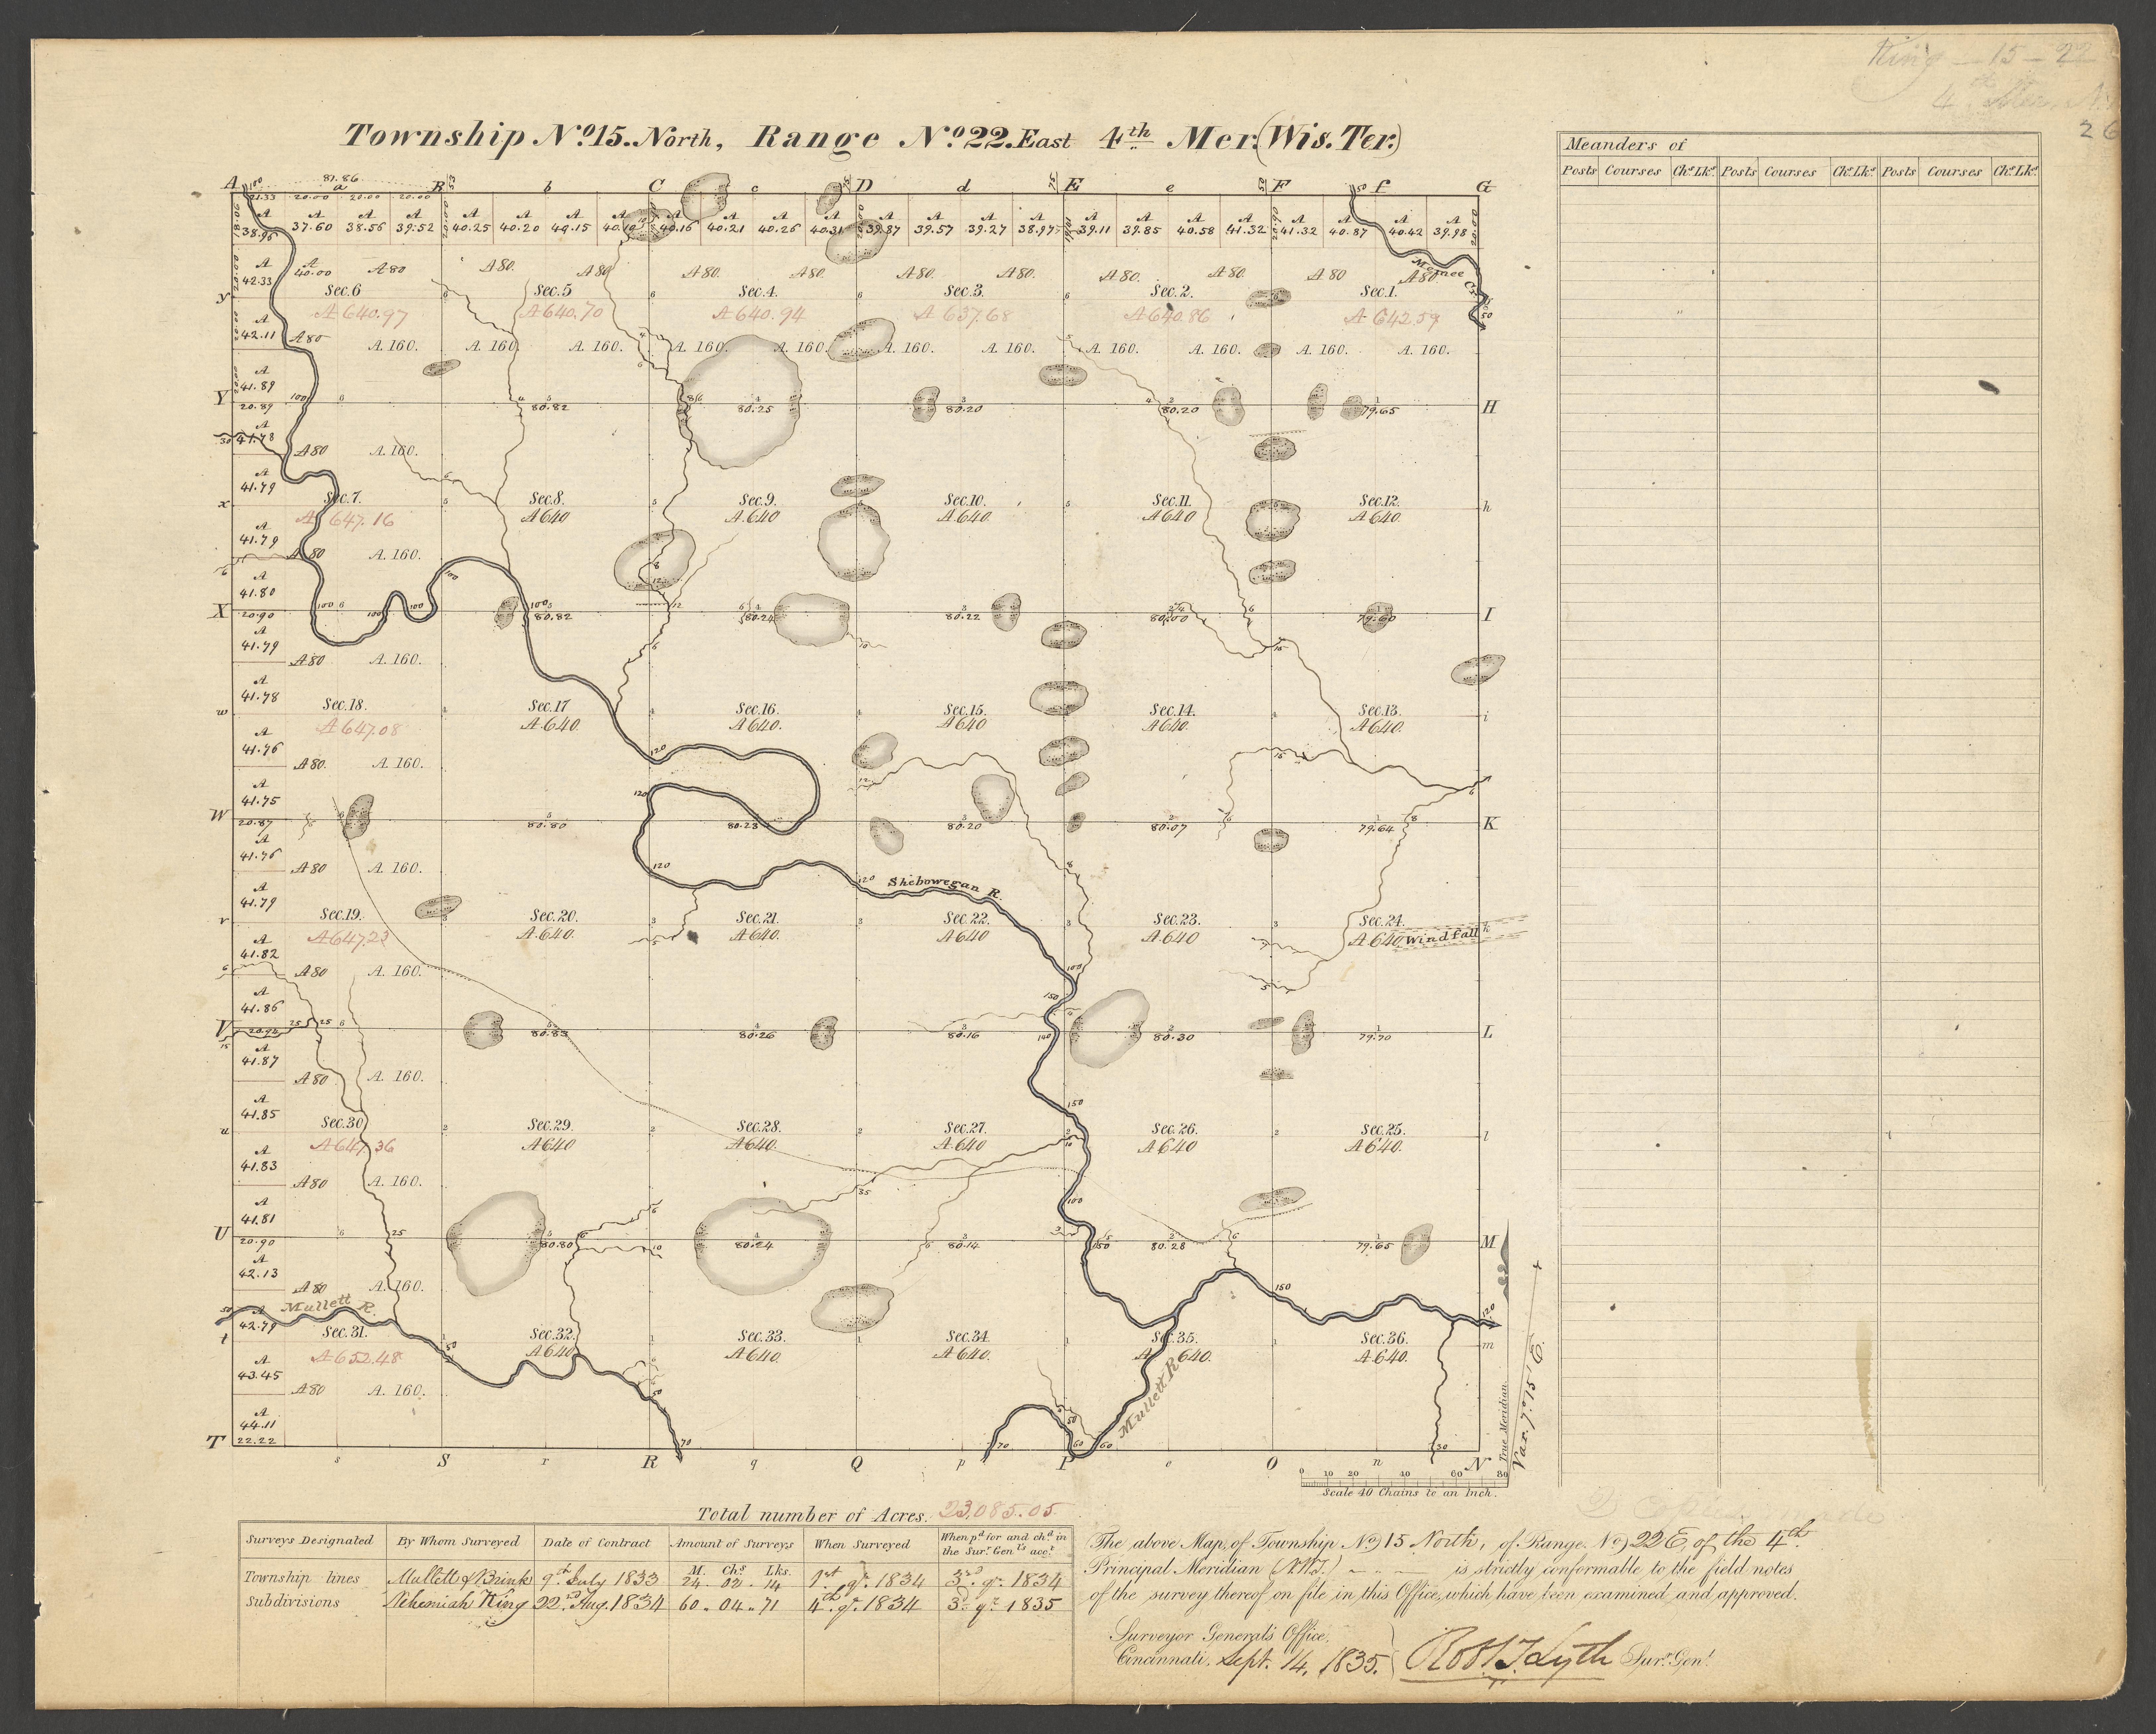 King — 15 — 22
26
Township No. 15. North, Range No. 22. East 4th Mer. (Wis. Ter.)
Meanders of
Posts Courses Chs. Lks. Posts Courses Chs. Lks. Posts Courses Chs. Lks.
81.86
A a B b C c D d E e F f G
21.33 20.00 20.00 20.00
A A A A A A A A A A A A A A A A A A A A A A A A
38.96 37.60 38.56 39.52 40.25 40.20 40.15 40.10 40.16 40.21 40.26 40.31 39.87 39.57 39.27 38.97 39.11 39.85 40.58 41.32 41.32 40.87 40.42 39.98
A 42.33 A 40.00 A 80 A 80. A 80 A 80. A 80. A 80. A 80. A 80. A 80. A 80 A 80
Memee Cr.
y Sec. 6 Sec. 5 Sec. 4. Sec. 3. Sec. 2. Sec. 1.
A 640.97 A 640.70 A 640.94 A 637.68 A 640.86 A 642.59
A 42.11 A 80 A. 160. A. 160. A. 160. A. 160. A. 160. A. 160. A. 160. A. 160. A. 160. A. 160. A. 160.
A 41.89
Y 20.89 80.82 80.25 80.20 80.20 79.65 H
A 41.78 A 80 A. 160.
A 41.79
x Sec. 7. Sec. 8. Sec. 9. Sec. 10. Sec. 11. Sec. 12. h
A 647.16 A 640 A. 640 A 640. A 640 A 640.
A 41.79 A 80 A. 160.
A 41.80
X 20.90 80.82 80.24 80.22 80.00 79.60 I
A 41.79 A 80 A. 160.
A 41.78
w Sec. 18. Sec. 17 Sec. 16. Sec. 15. Sec. 14. Sec. 13. i
A 647.08 A 640. A 640. A 640 A 640. A 640.
A 41.76 A 80. A. 160.
A 41.75
W 20.87 80.80 80.23 80.20 80.07 79.64 K
A 41.76 A 80 A. 160.
Shebowegan R.
A 41.79
r Sec. 19. Sec. 20. Sec. 21. Sec. 22. Sec. 23. Sec. 24. k
A 647.23 A 640. A 640. A 640 A 640 A 640 Windfall
A 41.82 A 80 A. 160.
A 41.86
V 20.94 80.83 80.26 80.16 80.30 79.70 L
A 41.87 A 80 A. 160.
A 41.85
u Sec. 30 Sec. 29. Sec. 28. Sec. 27. Sec. 26. Sec. 25. l
A 647.36 A 640 A 640. A 640 A 640 A 640.
A 41.83 A 80 A. 160.
A 41.81
U 20.90 80.80 80.24 80.14 80.28 79.65 M
A 42.13 A 80 A. 160.
Mullett R.
A 42.79
t Sec. 31. Sec. 32. Sec. 33. Sec. 34 Sec. 35. Sec. 36. m
A 652.48 A 640 A 640. A 640. A 640. A 640.
A 43.45 A 80 A. 160.
Mullett R
A 44.11
T 22.22
s S r R q Q p P o O n N
True Meridian.
Var. 7°.15' E.
0 10 20 40 60 80
Scale 40 Chains to an Inch.
Total number of Acres. 23,085.05
Surveys Designated By Whom Surveyed Date of Contract Amount of Surveys When Surveyed When pd. for and chd. in the Sur. Genl's acct.
M. Chs. Lks.
Township lines Mullett & Brink 9th July 1833 24 .. 02 .. 14 1st qr. 1834 3rd qr. 1834
Subdivisions Nehemiah King 22nd Aug. 1834 60 .. 04 .. 71 4th qr. 1834 3d qr. 1835
The above Map, of Township No. 15 North, of Range No. 22 E. of the 4th.
Principal Meridian (N.W.T.) is strictly conformable to the field notes
of the survey thereof on file in this Office, which have been examined and approved.
Surveyor General's Office,
Cincinnati, Sept. 14, 1835. Robt. T. Lytle Surr. Genl.